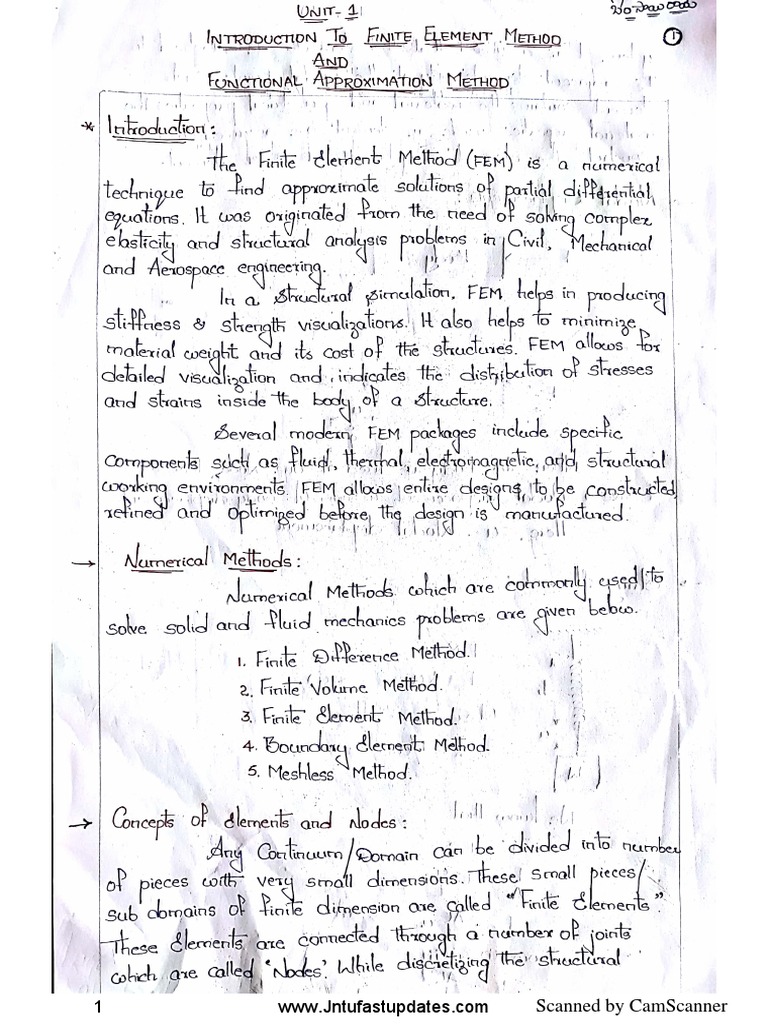 UNIT-1
INTRODUCTION TO FINITE ELEMENT METHOD
①
AND
FUNCTIONAL APPROXIMATION METHOD
* Introduction:
The Finite Element Method (FEM) is a numerical
technique to find approximate solutions of partial differential
equations. It was originated from the need of solving complex
elasticity and structural analysis problems in Civil, Mechanical
and Aerospace engineering.
In a structural simulation, FEM helps in producing
stiffness & strength visualizations. It also helps to minimize
material weight and its cost of the structures. FEM allows for
detailed visualization and indicates the distribution of stresses
and strains inside the body of a structure.
Several modern FEM packages include specific
components such as fluid, thermal, electromagnetic, and structural
working environments. FEM allows entire designs to be constructed,
refined and optimized before the design is manufactured.
→ Numerical Methods:
Numerical Methods which are commonly used to
solve solid and fluid mechanics problems are given below.
1. Finite Difference Method.
2. Finite Volume Method.
3. Finite Element Method.
4. Boundary Element Method.
5. Meshless Method.
→ Concepts of Elements and Nodes:
Any Continuum/Domain can be divided into number
of pieces with very small dimensions. These small pieces/
sub domains of finite dimension are called "Finite Elements".
These Elements are connected through a number of joints
which are called 'Nodes'. While discretizing the structural
1
www.Jntufastupdates.com
Scanned by CamScanner